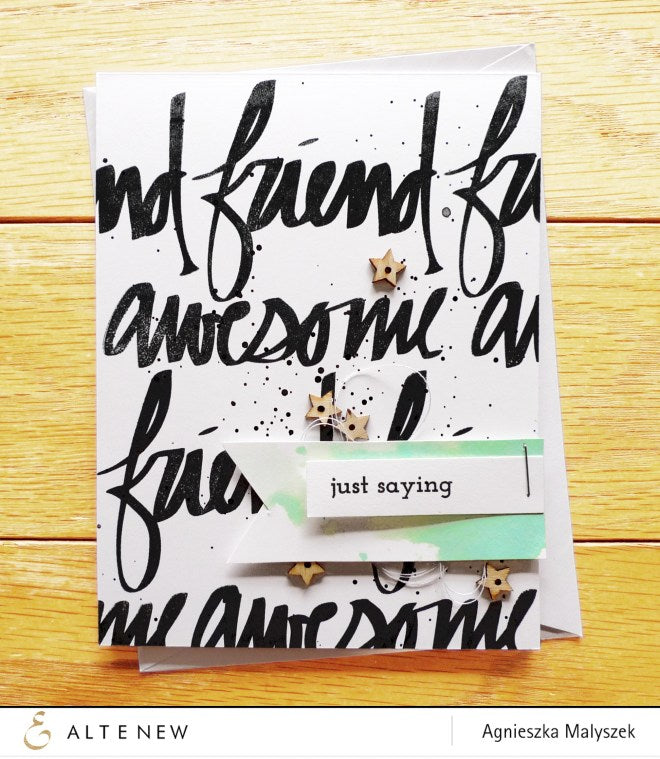 nd friend fri
awesome aw
frien
just saying
me awesome
ALTENEW
Agnieszka Malyszek